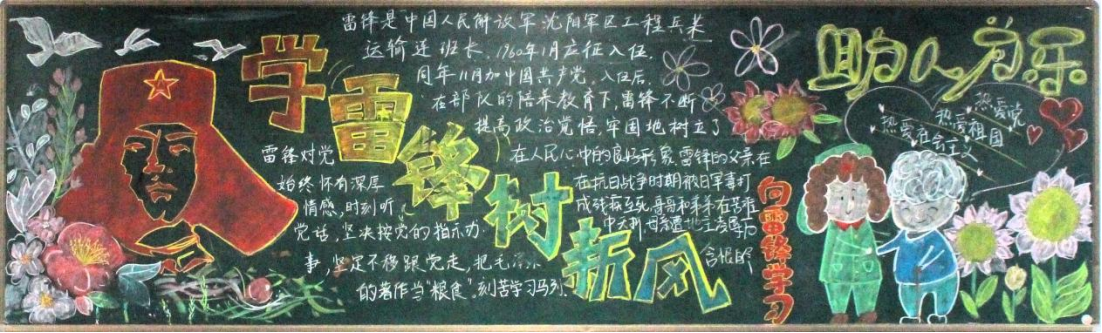 学雷锋树新风
雷锋是中国人民解放军沈阳军区工程兵某
运输连班长,1960年1月应征入伍,
同年11月加中国共产党。入伍后,
在部队的培养教育下,雷锋不断
提高政治觉悟,牢固地树立了
在人民心中的良好形象,雷锋的父亲在
在抗日战争时期被日军毒打
成残
哥哥和弟弟在
含恨
雷锋对党
始终怀有深厚
情感,时刻听
党话,坚决按党的指示办
事,坚定不移跟党走,把毛
的著作当“粮食”。刻苦学习马列
向雷锋学习
助人为乐
热爱党
热爱祖国
热爱社会主义